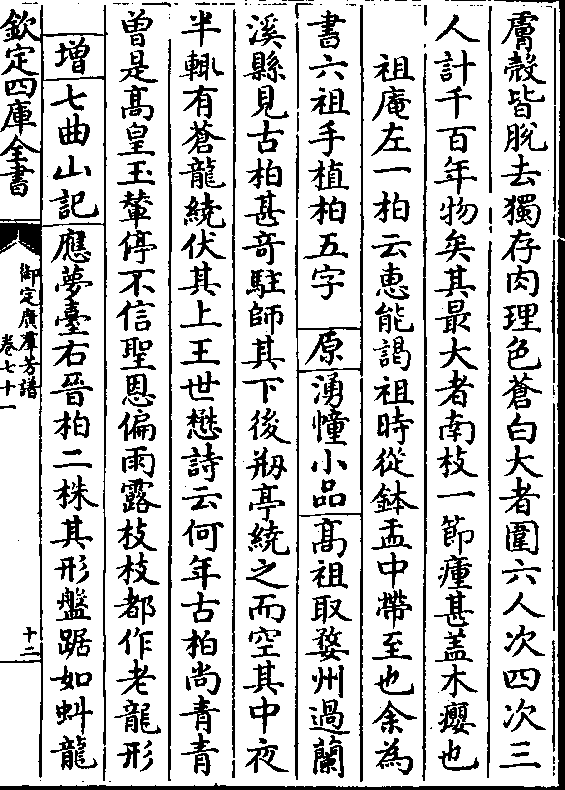 膚殼皆脫去獨存肉理色蒼白大者圍六人次四次三
人計千百年物矣其最大者南枝一節瘇甚盖木癭也
祖庵左一柏云惠能謁祖時從鉢盂中帶至也余為
書六祖手植柏五字 原 湧幢小品 髙祖取婺州過蘭
溪縣見古柏甚竒駐師其下後剏亭繞之而空其中夜
半輙有蒼龍繞伏其上王世懋詩云何年古柏尚青青
曾是髙皇玉輦停不信聖恩偏雨露枝枝都作老龍形
增 七曲山記 應夢臺右晉柏二株其形盤踞如蚪龍
欽定四庫全書
御定廣羣芳譜
卷七十一
十二